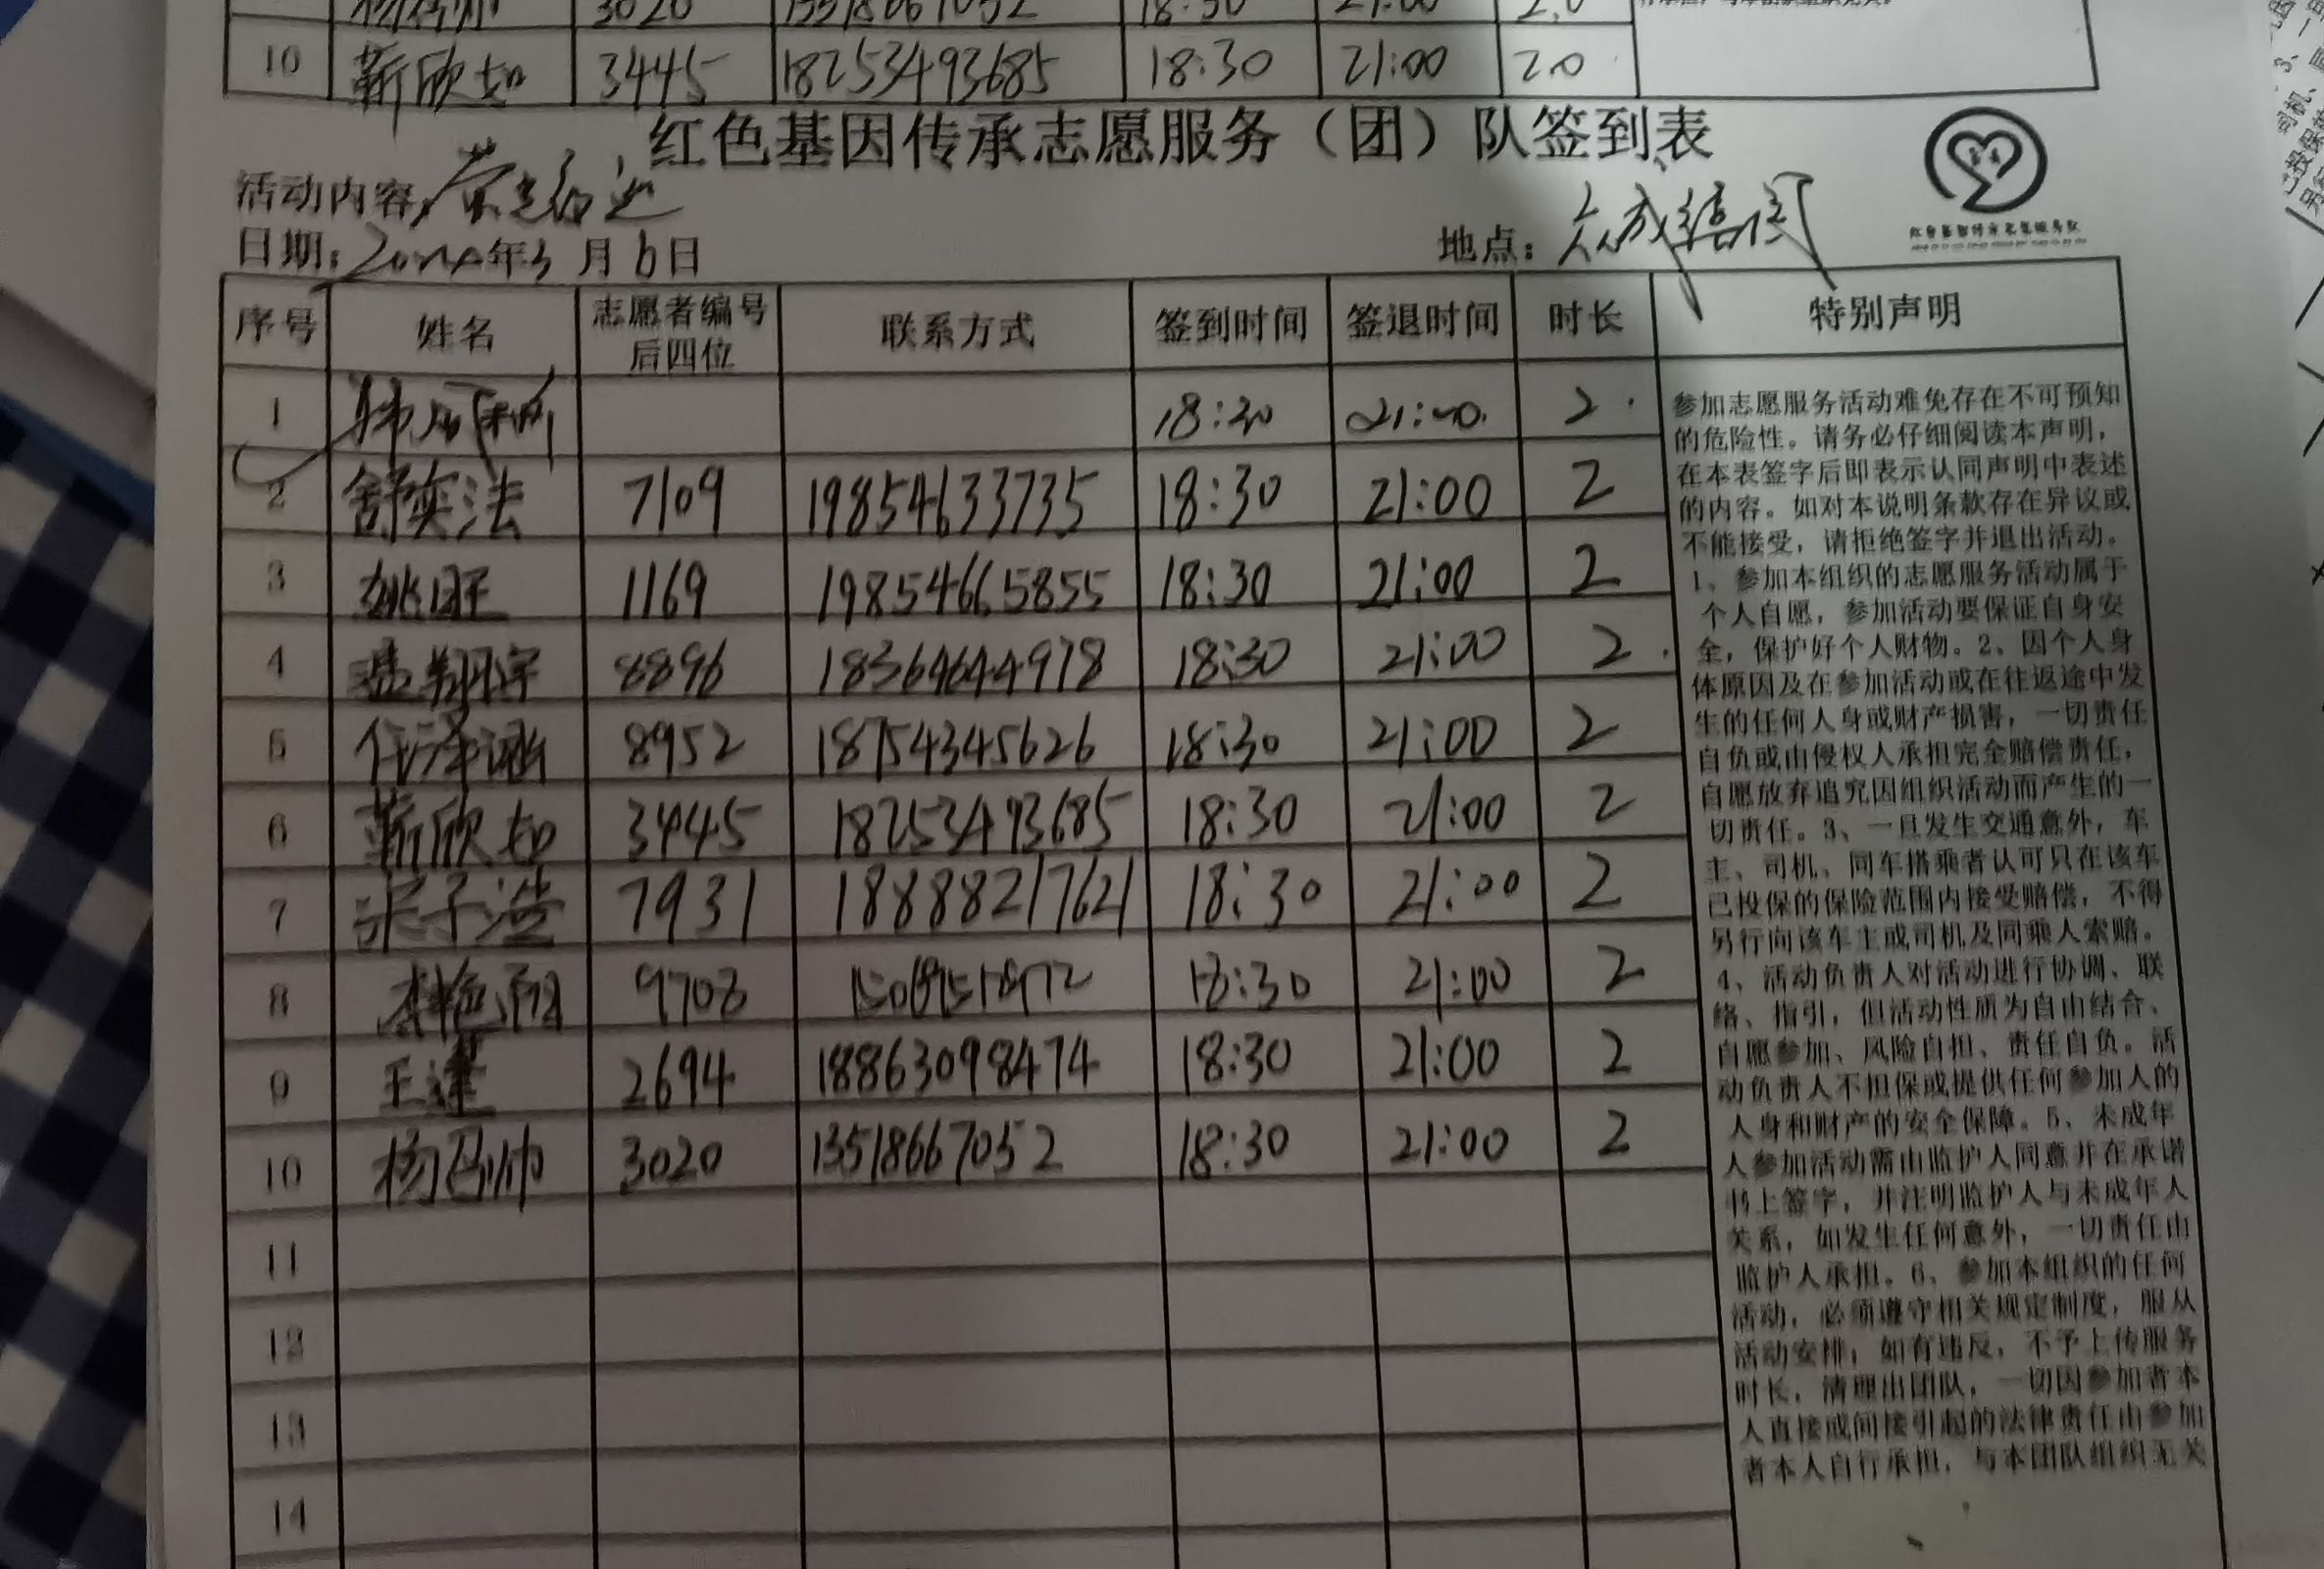 3020
18:30
21:00
2.0
10 靳欣如 3445 18253493685 18:30 21:00 2.0
红色基因传承志愿服务（团）队签到表
活动内容：
日期： 年3月6日 地点：
序号 姓名 志愿者编号后四位 联系方式 签到时间 签退时间 时长 特别声明
1 18:30 2
2 舒奕法 7109 19854633735 18:30 21:00 2
3 姚旺 1169 19854665855 18:30 21:00 2
4 孟翔宇 8896 18364644978 18:30 21:00 2
5 任泽涵 8952 18754345626 18:30 21:00 2
6 靳欣如 3445 18253493685 18:30 21:00 2
7 子浩 7931 18888217621 18:30 21:00 2
8 9708 18:30 21:00 2
9 王 2694 18863098474 18:30 21:00 2
10 杨 帅 3020 13518667052 18:30 21:00 2
11
12
13
14
参加志愿服务活动难免存在不可预知
的危险性。请务必仔细阅读本声明，
在本表签字后即表示认同声明中表述
的内容。如对本说明条款存在异议或
不能接受，请拒绝签字并退出活动。
1、参加本组织的志愿服务活动属于
个人自愿，参加活动要保证自身安
全，保护好个人财物。2、因个人身
体原因及在参加活动或在往返途中发
生的任何人身或财产损害，一切责任
自负或由侵权人承担完全赔偿责任，
自愿放弃追究因组织活动而产生的一
切责任。3、一旦发生交通意外，车
主、司机、同车搭乘者认可只在该车
已投保的保险范围内接受赔偿，不得
另行向该车主或司机及同乘人索赔。
4、活动负责人对活动进行协调、联
络、指引，但活动性质为自由结合、
自愿参加、风险自担、责任自负。活
动负责人不担保或提供任何参加人的
人身和财产的安全保障。5、未成年
人参加活动需由监护人同意并在承诺
书上签字，并注明监护人与未成年人
关系，如发生任何意外，一切责任由
监护人承担。6、参加本组织的任何
活动，必须遵守相关规定制度，服从
活动安排；如有违反，不予上传服务
时长，清理出团队，一切因参加者本
人直接或间接引起的法律责任由参加
者本人自行承担，与本团队组织无关